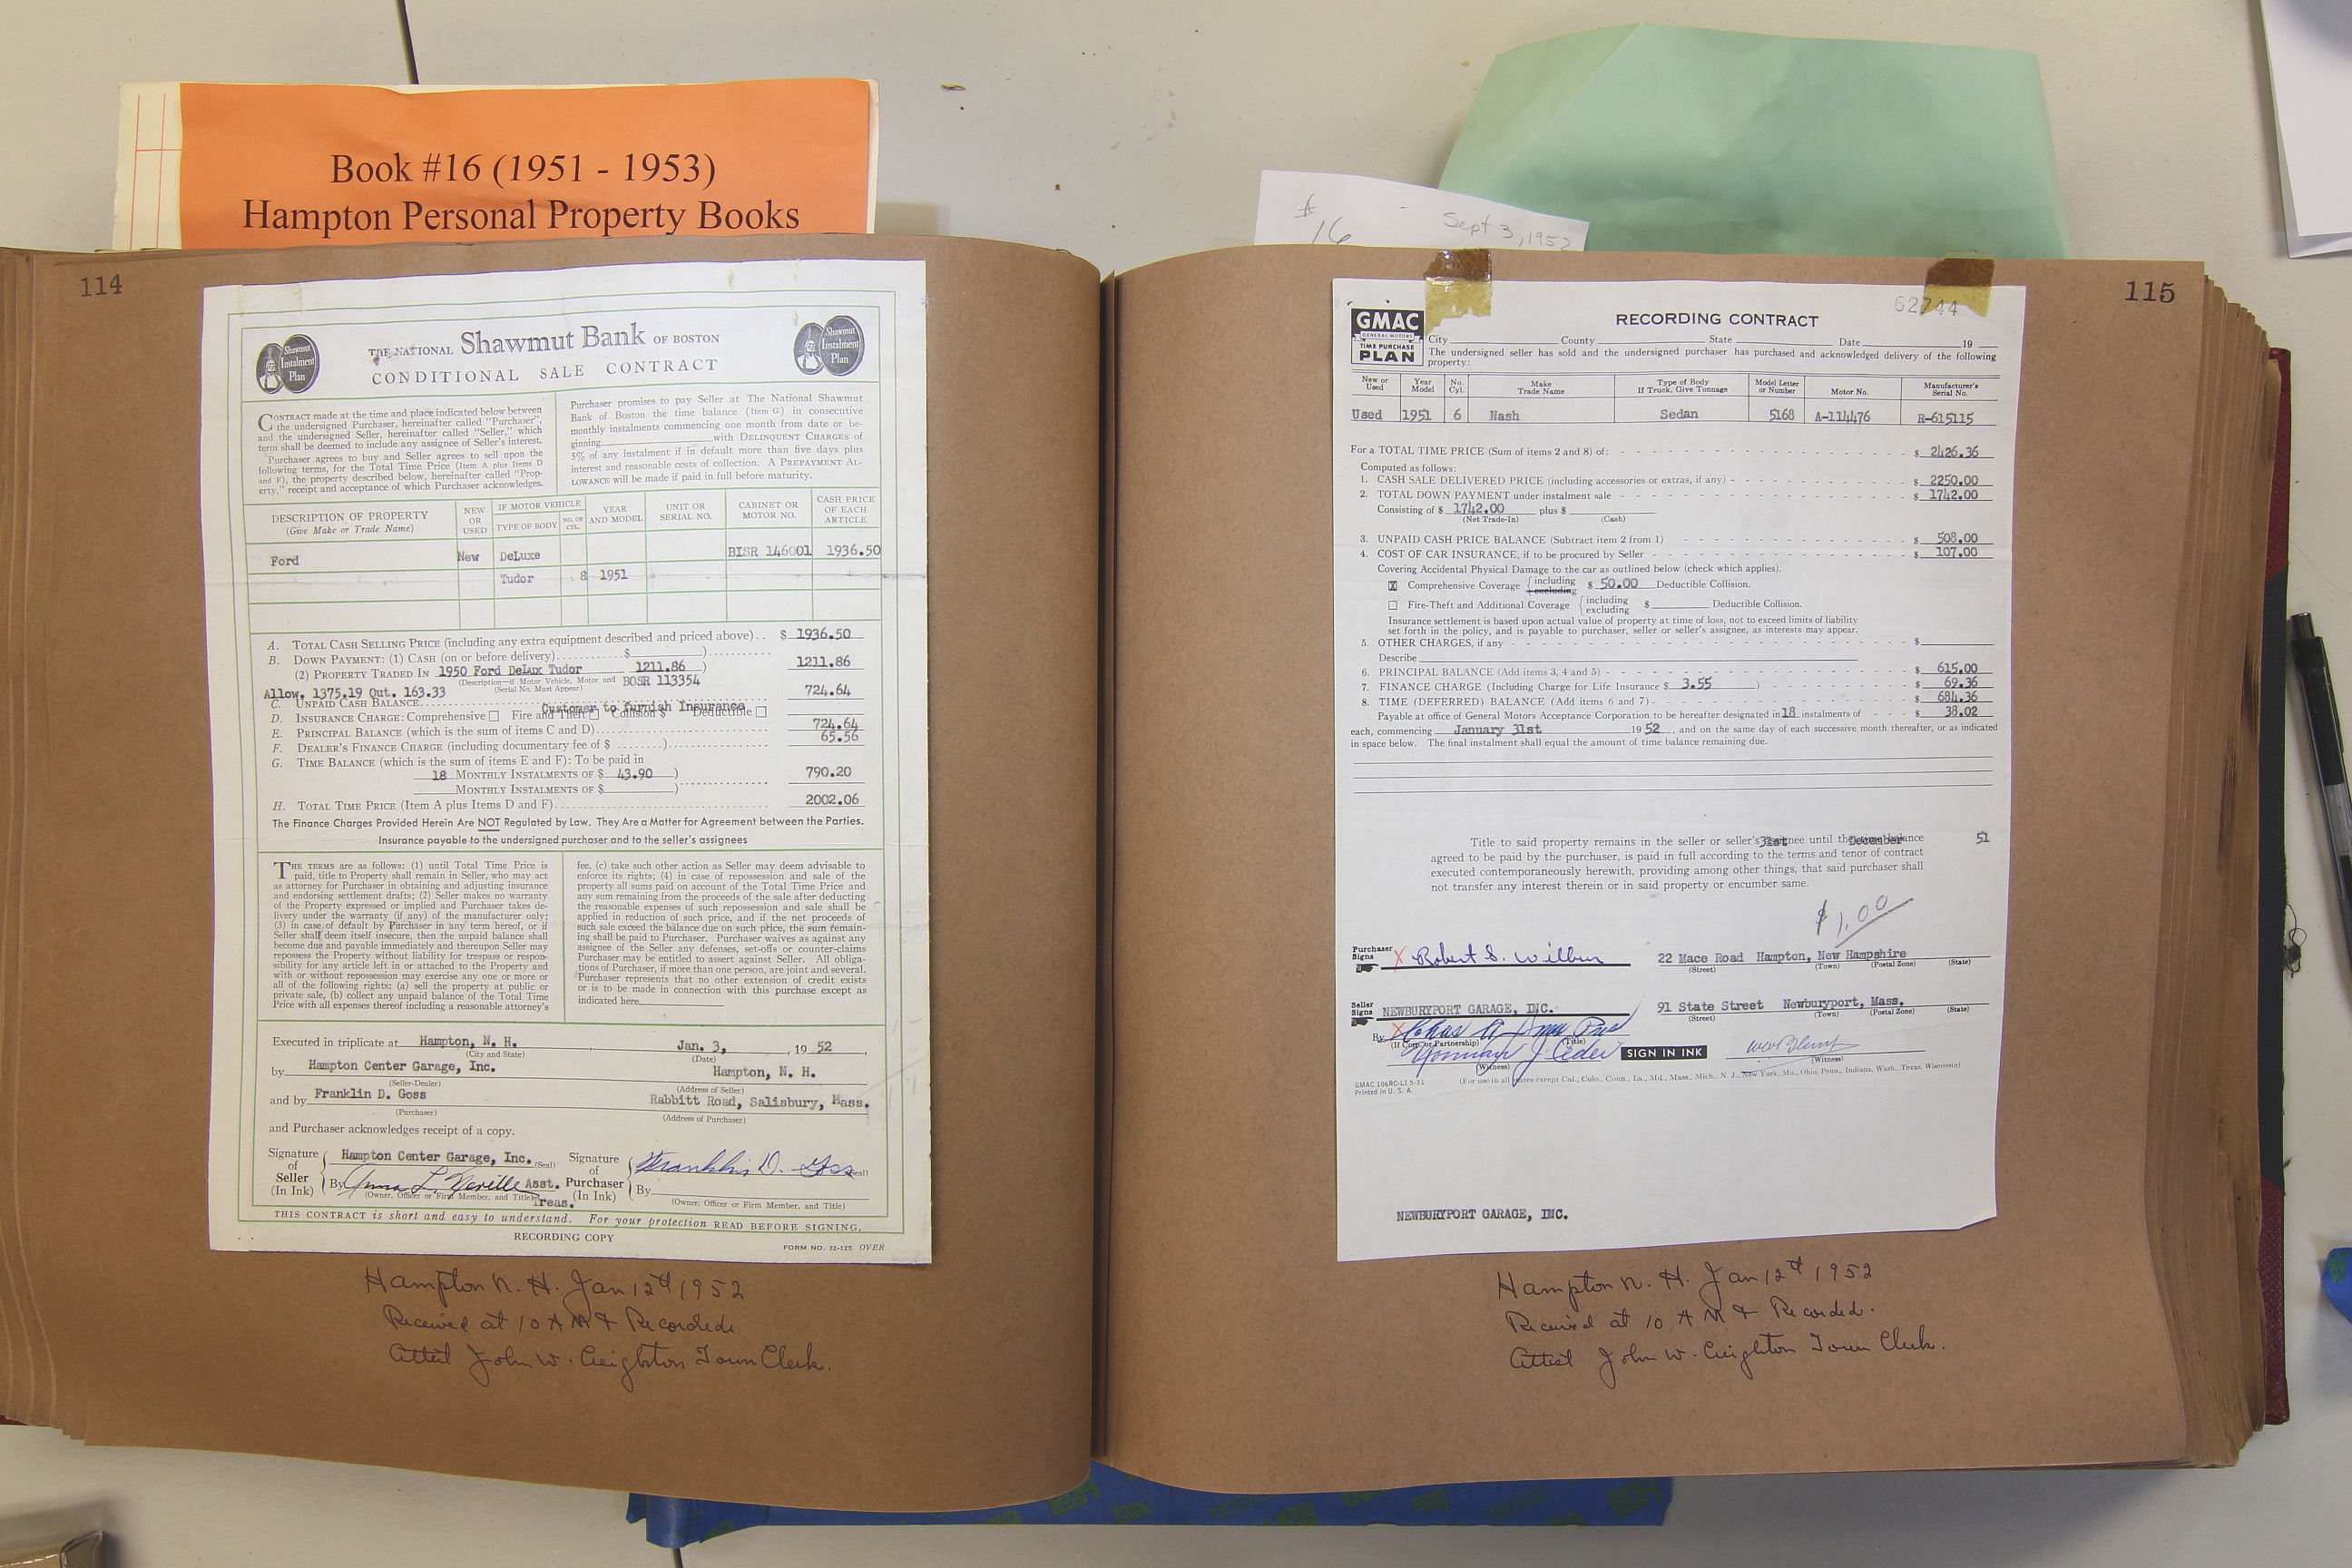 Book #16 (1951 - 1953)
Hampton Personal Property Books
16
Sept 3, 1952
114
Shawmut
Instalment
Plan
THE NATIONAL Shawmut Bank OF BOSTON
CONDITIONAL SALE CONTRACT
Shawmut
Instalment
Plan
CONTRACT made at the time and place indicated below between
the undersigned Purchaser, hereinafter called "Purchaser",
and the undersigned Seller, hereinafter called "Seller," which
term shall be deemed to include any assignee of Seller's interest.
Purchaser agrees to buy and Seller agrees to sell upon the
following terms, for the Total Time Price (Item A plus Items D
and F), the property described below, hereinafter called "Prop-
erty," receipt and acceptance of which Purchaser acknowledges.
Purchaser promises to pay Seller at The National Shawmut
Bank of Boston the time balance (Item G) in consecutive
monthly instalments commencing one month from date or be-
ginning with DELINQUENT CHARGES of
5% of any instalment if in default more than five days plus
interest and reasonable costs of collection. A PREPAYMENT AL-
LOWANCE will be made if paid in full before maturity.
DESCRIPTION OF PROPERTY
(Give Make or Trade Name)
NEW
OR
USED
IF MOTOR VEHICLE
TYPE OF BODY
NO. OF
CYL.
YEAR
AND MODEL
UNIT OR
SERIAL NO.
CABINET OR
MOTOR NO.
CASH PRICE
OF EACH
ARTICLE
Ford New DeLuxe BISR 146001 1936.50
Tudor 8 1951
A. TOTAL CASH SELLING PRICE (including any extra equipment described and priced above).. $ 1936.50
B. DOWN PAYMENT: (1) CASH (on or before delivery)..........$ )..........
(2) PROPERTY TRADED IN 1950 Ford DeLux Tudor 1211.86 ) 1211.86
(Description—if Motor Vehicle, Motor and BOSR 113354
(Serial No. Must Appear)
Allow. 1375.19 Out. 163.33
C. UNPAID CASH BALANCE.......... 724.64
Customer to furnish Insurance
D. INSURANCE CHARGE: Comprehensive ☐ Fire and Theft ☐ Collision $ Deductible ☐
E. PRINCIPAL BALANCE (which is the sum of items C and D).......... 724.64
F. DEALER'S FINANCE CHARGE (including documentary fee of $ ........).......... 65.56
G. TIME BALANCE (which is the sum of items E and F): To be paid in
18 MONTHLY INSTALMENTS OF $ 43.90 ) .......... 790.20
MONTHLY INSTALMENTS OF $ )
H. TOTAL TIME PRICE (Item A plus Items D and F).......... 2002.06
The Finance Charges Provided Herein Are NOT Regulated by Law. They Are a Matter for Agreement between the Parties.
Insurance payable to the undersigned purchaser and to the seller's assignees
THE TERMS are as follows: (1) until Total Time Price is
paid, title to Property shall remain in Seller, who may act
as attorney for Purchaser in obtaining and adjusting insurance
and endorsing settlement drafts; (2) Seller makes no warranty
of the Property expressed or implied and Purchaser takes de-
livery under the warranty (if any) of the manufacturer only;
(3) in case of default by Purchaser in any term hereof, or if
Seller shall deem itself insecure, then the unpaid balance shall
become due and payable immediately and thereupon Seller may
repossess the Property without liability for trespass or respon-
sibility for any article left in or attached to the Property and
with or without repossession may exercise any one or more or
all of the following rights: (a) sell the property at public or
private sale, (b) collect any unpaid balance of the Total Time
Price with all expenses thereof including a reasonable attorney's
fee, (c) take such other action as Seller may deem advisable to
enforce its rights; (4) in case of repossession and sale of the
property all sums paid on account of the Total Time Price and
any sum remaining from the proceeds of the sale after deducting
the reasonable expenses of such repossession and sale shall be
applied in reduction of such price, and if the net proceeds of
such sale exceed the balance due on such price, the sum remain-
ing shall be paid to Purchaser. Purchaser waives as against any
assignee of the Seller any defenses, set-offs or counter-claims
Purchaser may be entitled to assert against Seller. All obliga-
tions of Purchaser, if more than one person, are joint and several.
Purchaser represents that no other extension of credit exists
or is to be made in connection with this purchase except as
indicated here
Executed in triplicate at Hampton, N. H. , Jan. 3, , 19 52 ,
(City and State) (Date)
by Hampton Center Garage, Inc. Hampton, N. H.
(Seller-Dealer) (Address of Seller)
and by Franklin D. Goss Rabbitt Road, Salisbury, Mass.
(Purchaser) (Address of Purchaser)
and Purchaser acknowledges receipt of a copy.
Signature
of
Seller
(In Ink)
Hampton Center Garage, Inc. (Seal)
By Anna L. Neville Asst.
Treas.
(Owner, Officer or Firm Member, and Title)
Signature
of
Purchaser
(In Ink)
Franklin D. Goss (Seal)
By
(Owner, Officer or Firm Member, and Title)
THIS CONTRACT is short and easy to understand. For your protection READ BEFORE SIGNING.
RECORDING COPY
FORM NO. 32-125 OVER
Hampton N. H. Jan 12th 1952
Received at 10 A M & Recorded
Attest John W. Creighton Town Clerk.
115
62744
GMAC
GENERAL MOTORS
TIME PURCHASE
PLAN
RECORDING CONTRACT
City County State Date 19
The undersigned seller has sold and the undersigned purchaser has purchased and acknowledged delivery of the following
property:
New or
Used
Year
Model
No.
Cyl.
Make
Trade Name
Type of Body
If Truck, Give Tonnage
Model Letter
or Number
Motor No.
Manufacturer's
Serial No.
Used 1951 6 Nash Sedan 5168 A-114476 R-615115
For a TOTAL TIME PRICE (Sum of items 2 and 8) of: $ 2426.36
Computed as follows:
1. CASH SALE DELIVERED PRICE (including accessories or extras, if any) $ 2250.00
2. TOTAL DOWN PAYMENT under instalment sale $ 1742.00
Consisting of $ 1742.00 plus $
(Net Trade-In) (Cash)
3. UNPAID CASH PRICE BALANCE (Subtract item 2 from 1) $ 508.00
4. COST OF CAR INSURANCE, if to be procured by Seller $ 107.00
Covering Accidental Physical Damage to the car as outlined below (check which applies).
☒ Comprehensive Coverage { including excluding $ 50.00 Deductible Collision.
☐ Fire-Theft and Additional Coverage { including excluding $ Deductible Collision.
Insurance settlement is based upon actual value of property at time of loss, not to exceed limits of liability
set forth in the policy, and is payable to purchaser, seller or seller's assignee, as interests may appear.
5. OTHER CHARGES, if any $
Describe
6. PRINCIPAL BALANCE (Add items 3, 4 and 5) $ 615.00
7. FINANCE CHARGE (Including Charge for Life Insurance $ 3.55 ) $ 69.36
8. TIME (DEFERRED) BALANCE (Add items 6 and 7) $ 684.36
Payable at office of General Motors Acceptance Corporation to be hereafter designated in 18 instalments of $ 38.02
each, commencing January 31st 19 52, and on the same day of each successive month thereafter, or as indicated
in space below. The final instalment shall equal the amount of time balance remaining due.
31st December 51
Title to said property remains in the seller or seller's assignee until the time balance
agreed to be paid by the purchaser, is paid in full according to the terms and tenor of contract
executed contemporaneously herewith, providing among other things, that said purchaser shall
not transfer any interest therein or in said property or encumber same.
$1.00
Purchaser
Signs
X Robert S. Wilbur 22 Mace Road Hampton, New Hampshire
(Street) (Town) (Postal Zone) (State)
Seller
Signs
NEWBURYPORT GARAGE, INC. 91 State Street Newburyport, Mass.
(Street) (Town) (Postal Zone) (State)
By X Chas
(If Corp. or Partnership) (Title)
(Witness)
SIGN IN INK
(Witness)
GMAC 106RC-L1 5-51
Printed in U. S. A.
(For use in all states except Cal., Colo., Conn., La., Md., Mass., Mich., N. J., New York, Mo., Ohio, Penn., Indiana, Wash., Texas, Wisconsin)
NEWBURYPORT GARAGE, INC.
Hampton N. H. Jan 12th 1952
Received at 10 A M & Recorded.
Attest John W. Creighton Town Clerk.